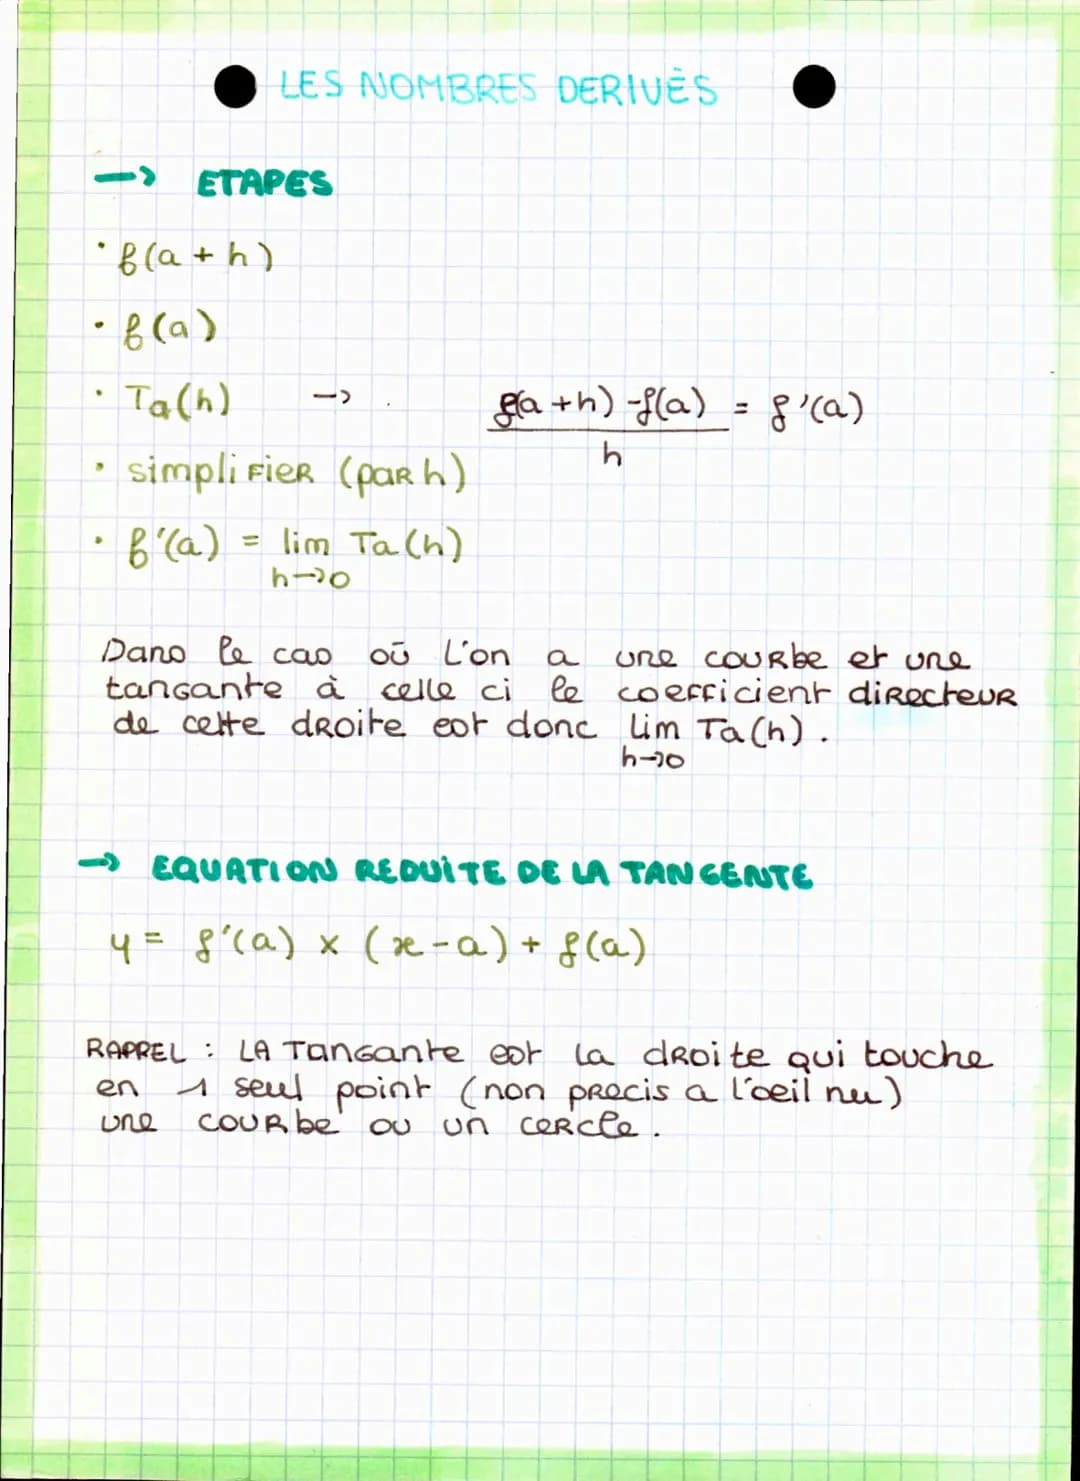 LES NOMBRES DERIVÉS
→ ETAPES
• f(a + h)
• f(a)
• Ta(h) → . f(a+h) - f(a) = f'(a)
h
• simplifier (par h)
• f'(a) = lim Ta(h)
h→0
Dans le cas où l'on a une courbe et une
tangante à celle ci le coefficient directeur
de cette droite est donc lim Ta(h).
h→0
→ EQUATION REDUITE DE LA TANGENTE
y = f'(a) × (x-a) + f(a)
RAPPEL : LA Tangante est la droite qui touche
en 1 seul point (non precis a l'oeil nu)
une courbe ou un cercle.